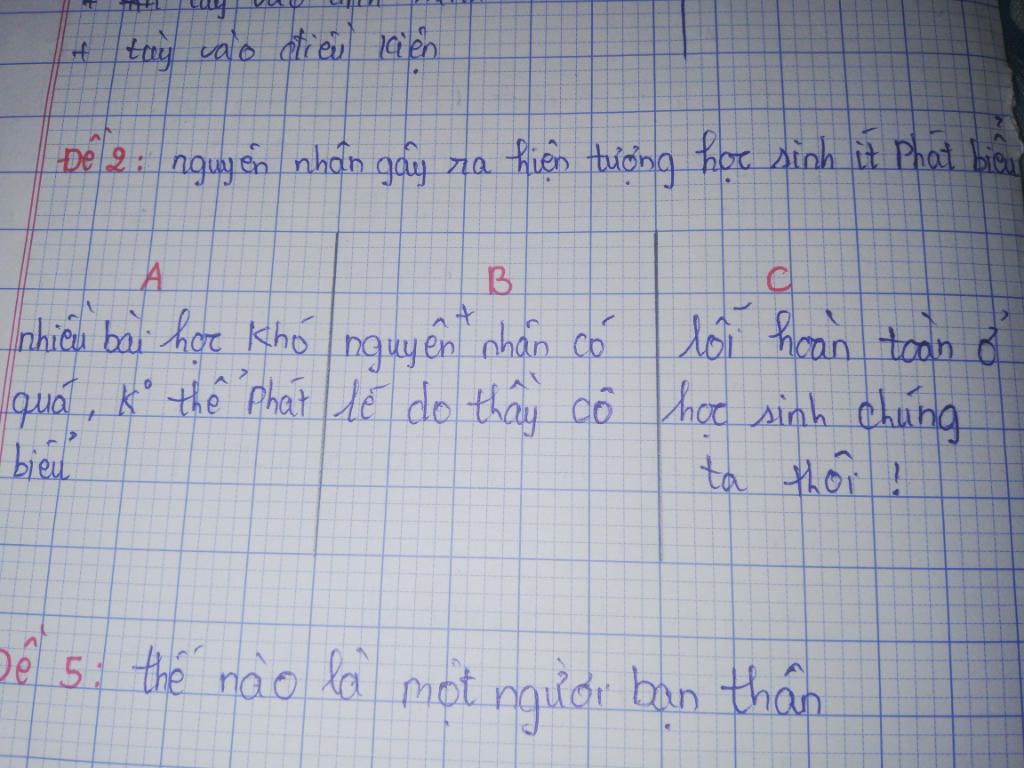 + tùy vào điều kiện
Đề 2: nguyên nhân gây ra hiện tượng học sinh ít Phát biểu
A
B
C
nhiều bài học Khó
quá, K° thể Phát
biểu
nguyên nhân có
lẽ do thầy cô
lỗi hoàn toàn ở
học sinh chúng
ta thôi !
Đề 5: thế nào là một người bạn thân